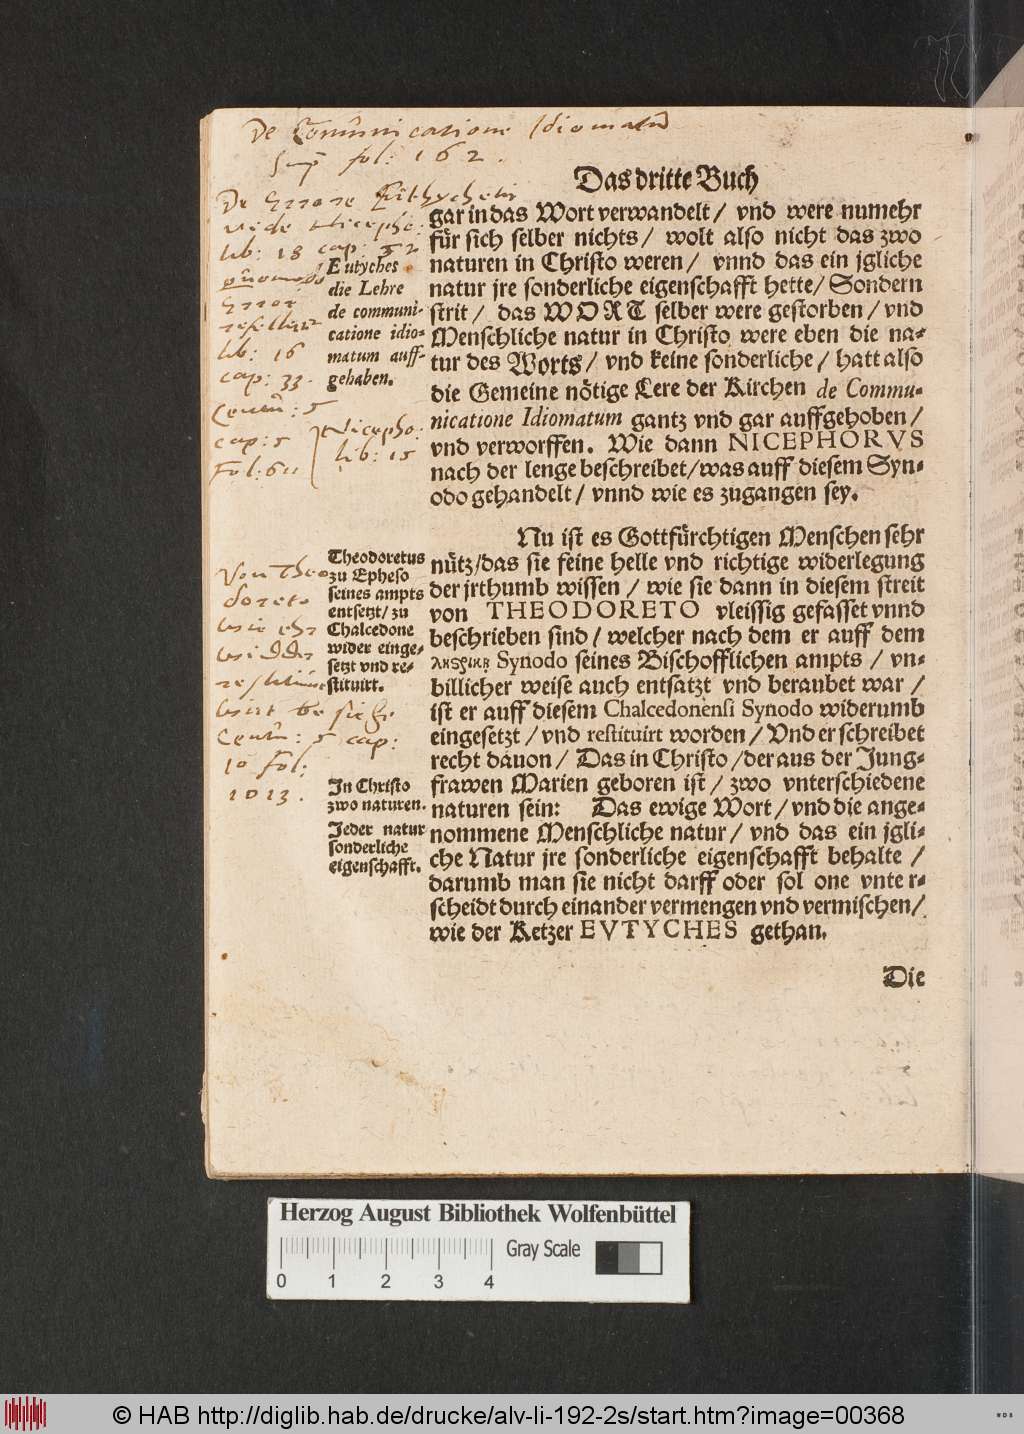 De Com̃unicatione Idiomatũ
Sup̃ fol: 162.
De Errore Eüthychetis
vide Nicepho:
lib: 18 cap: 52
Error
lib: 16
cap: 33.
Centũ: 5
cap: 5
Fol: 611
Nicepho:
lib: 15
Von Theo
doreto
wie ehr
widder
restituiret
wirt besiehe
Centũ: 5 cap:
10 fol:
1013.
Das dritte Buch
Eutyches
die Lehre
de communi-
catione idio-
matum auff-
gehaben.
gar in das Wort verwandelt / vnd were numehr
für sich selber nichts / wolt also nicht das zwo
naturen in Christo weren / vnnd das ein jgliche
natur jre sonderliche eigenschafft hette / Sondern
strit / das WORT selber were gestorben / vnd
Menschliche natur in Christo were eben die na-
tur des Worts / vnd keine sonderliche / hatt also
die Gemeine nötige Lere der Kirchen de Commu-
nicatione Idiomatum gantz vnd gar auffgehoben /
vnd verworffen. Wie dann NICEPHORVS
nach der lenge beschreibet / was auff diesem Syn-
odo gehandelt / vnnd wie es zugangen sey.
Theodoretus
zu Epheso
seines ampts
entsetzt / zu
Chalcedone
wider einge-
setzt vnd re-
stituirt.
In Christo
zwo naturen.
Jeder natur
sonderliche
eigenschafft.
Nu ist es Gottfürchtigen Menschen sehr
nütz / das sie feine helle vnd richtige widerlegung
der jrthumb wissen / wie sie dann in diesem streit
von THEODORETO vleissig gefasset vnnd
beschrieben sind / welcher nach dem er auff dem
Synodo seines Bischofflichen ampts / vn-
billicher weise auch entsatzt vnd beraubet war /
ist er auff diesem Chalcedonensi Synodo widerumb
eingesetzt / vnd restituirt worden / Vnd er schreibet
recht dauon / Das in Christo / der aus der Jung-
frawen Marien geboren ist / zwo vnterschiedene
naturen sein: Das ewige Wort / vnd die ange-
nommene Menschliche natur / vnd das ein jgli-
che Natur jre sonderliche eigenschafft behalte /
darumb man sie nicht darff oder sol one vnter-
scheidt durch einander vermengen vnd vermischen /
wie der Ketzer EVTYCHES gethan.
Die
Herzog August Bibliothek Wolfenbüttel
Gray Scale
0 1 2 3 4
© HAB http://diglib.hab.de/drucke/alv-li-192-2s/start.htm?image=00368